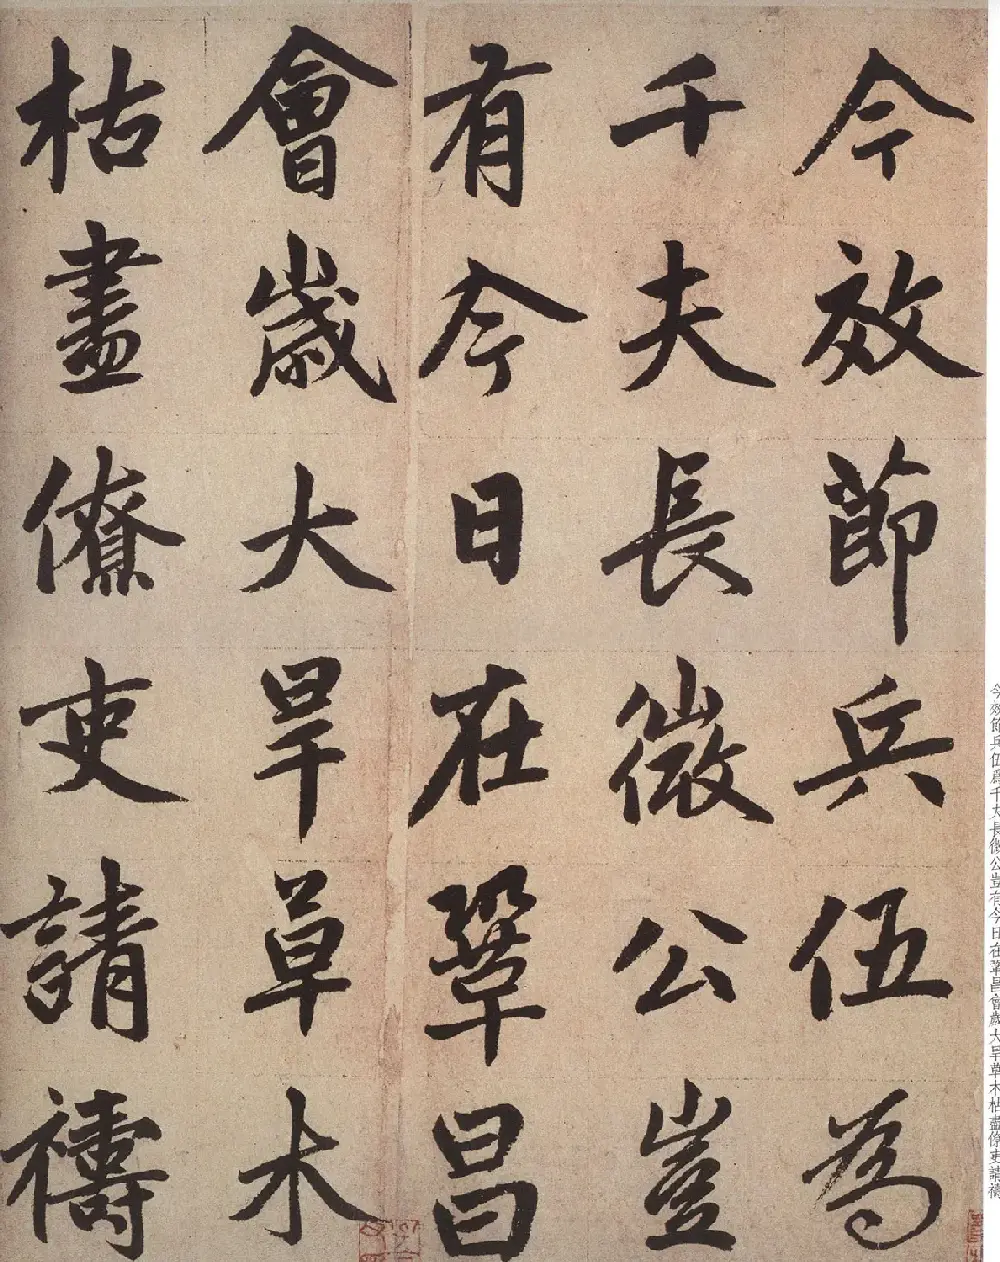 今效節兵伍為
千夫長微公豈
有今日在鞏昌
會歲大旱草木
枯盡僚吏請禱
今效節兵伍為千夫長微公豈有今日在鞏昌會歲大旱草木枯盡僚吏請禱